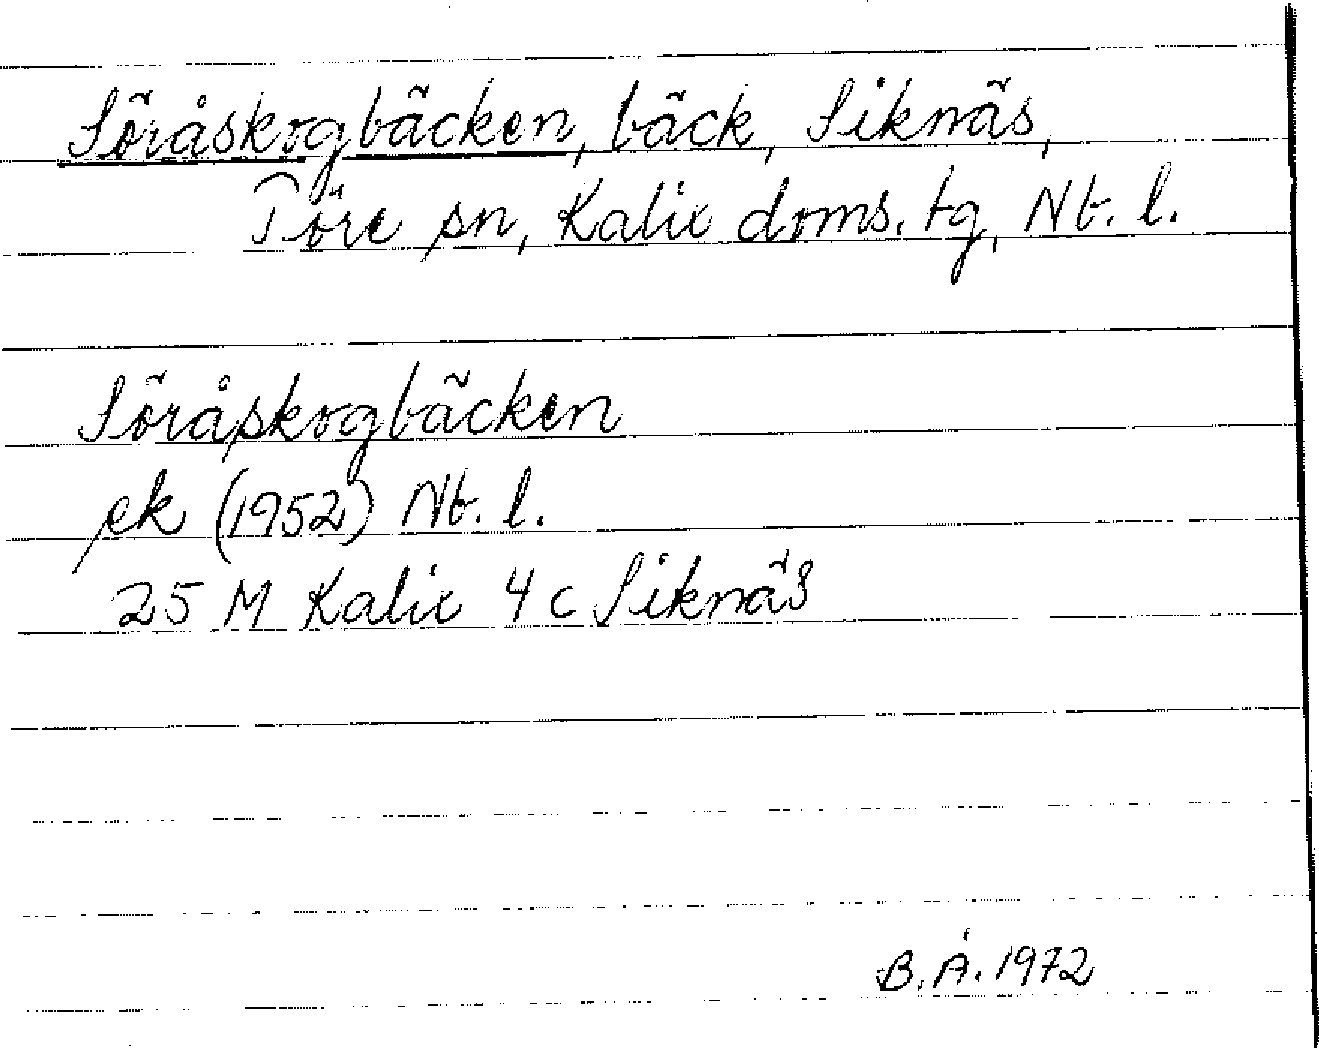 Söråskogbäcken, bäck, Siknäs,
Töre sn, Kalix doms. tg, Nb. l.
Söråskogbäcken
ek (1952) Nb. l.
25 M Kalix 4 c Siknäs
B. Å. 1972